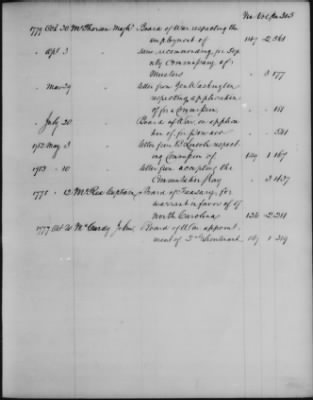 No Vol. Pa. 305
1779 Oct 30 McThorian Majr Board of War respecting the
employment of 147 2 561
" Apl 3 " same recommending for Dep
uty Commissary of
Musters " 3 177
" Mar 29 " letter from Gen Washington
respecting application
of for a Commission " " 181
" July 20 " Board of War, on applica
tion of, for forward " " 541
1782 May 3 " letter from B Lincoln respect
ing Commission of 149 1 167
1783 " 10 " letter from accepting the
Commutation pay " 3 1637
1778 " 12 McRea Captain, Board of Treasury, for
warrant in favor of of
North Carolina 136 2 211
1777 Oct 20 McCurdy John, Board of War appoint
ment of 2d Lieutenant 147 1 319